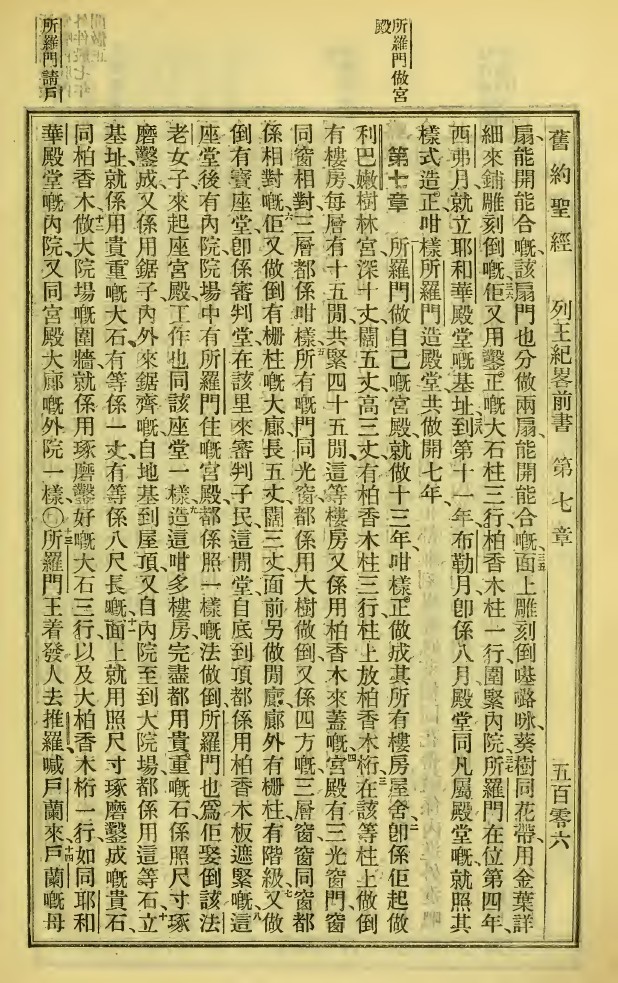 所羅門做宮
殿
所羅門請戶
舊約聖經 列王紀畧前書 第七章 五百零六
扇能開能合嘅、該扇門也分做兩扇、能開能合嘅、三五面上雕刻倒𠸄㖿㖿、葵樹同花帶、用金葉詳
細來鋪雕刻倒嘅、三六佢又用鑿正嘅大石柱三行、柏香木柱一行、圍緊內院、三七所羅門在位第四年、
西弗月、就立耶和華殿堂嘅基址、三八到第十一年布勒月、卽係八月、殿堂同凡屬殿堂嘅、就照其
樣式造正、咁樣所羅門造殿堂共做開七年、
第七章 一所羅門做自己嘅宮殿、就做十三年、咁樣正做成其所有樓房屋舍、二卽係佢起做
利巴嫩樹林宮、深十丈、闊五丈、高三丈、有柏香木柱三行、柱上放柏香木桁、三在該等柱上做倒
有樓房、每層有十五閒、共緊四十五閒、這等樓房又係用柏香木來蓋嘅、四宮殿有三光窗門、窗
同窗相對、三層都係咁樣、五所有嘅門同光窗、都係用大樹做倒、又係四方嘅、三層窗窗同窗都
係相對嘅、六佢又做倒有栅柱嘅大廊、長五丈、闊三丈、面前另做閒廊、廊外有栅柱、有階級、七又做
倒有寶座堂、卽係審判堂、在該里來審判子民、這閒堂自底到頂、都係用柏香木板遮緊嘅、八這
座堂後有內院、院場中有所羅門住嘅宮殿、都係照一樣嘅法做倒、所羅門也爲佢娶倒該法
老女子來起座宮殿、工作也同該座堂一樣、九造這咁多樓房、完盡都用貴重嘅石、係照尺寸琢
磨鑿成、又係用鋸子內外來鋸齊嘅、自地基到屋頂、又自內院至到大院場、都係用這等石、十立
基址就係用貴重嘅大石、有等係一丈、有等係八尺長嘅、十一面上就用照尺寸琢磨鑿成嘅貴石、
同柏香木、十二做大院場嘅圍牆、就係用琢磨鑿好嘅大石三行、以及大柏香木桁一行、如同耶和
華殿堂嘅內院、又同宮殿大廊嘅外院一樣、〇十三所羅門王着發人去推羅喊戶蘭來、十四戶蘭嘅母